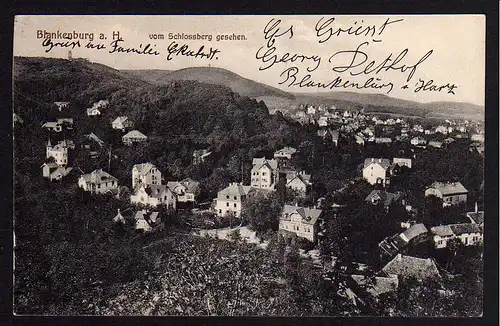 Blankenburg a. H. vom Schlossberg gesehen.
Gruss an Familie Ekardt
Es Grüsst
Georg Dethof
Blankenburg i Harz